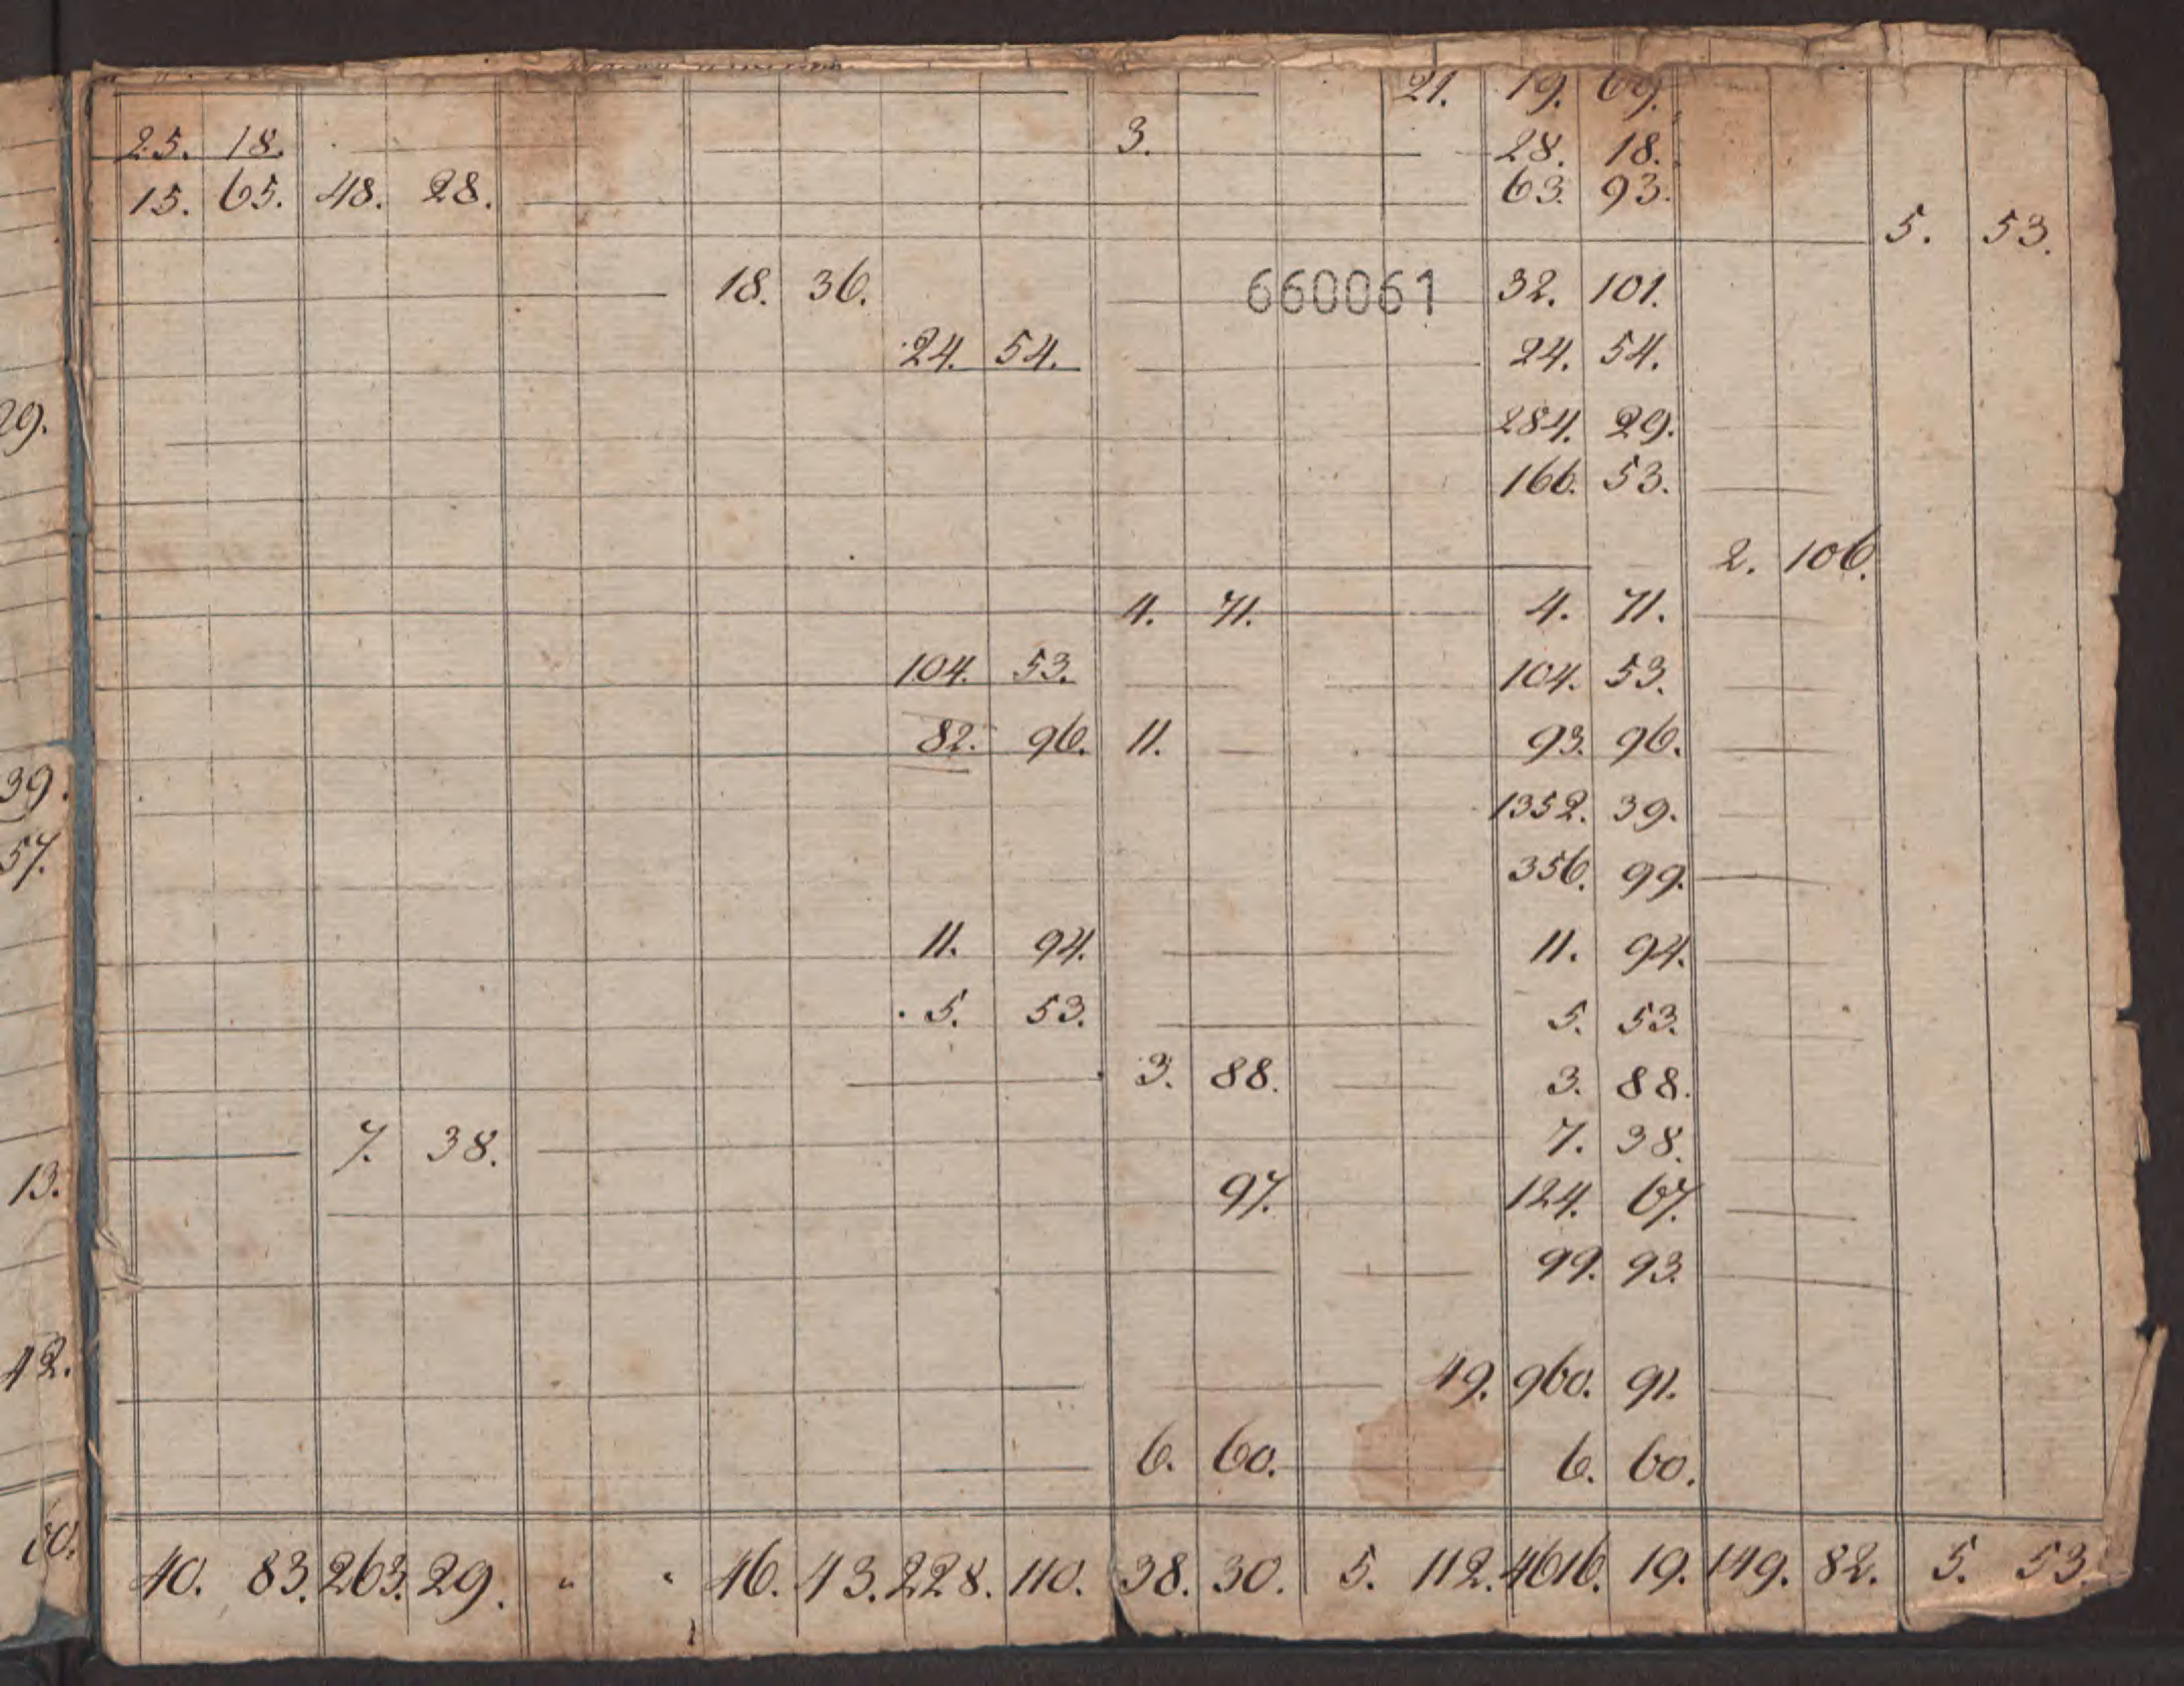 21. 19. 69.
25. 18. 3. 28. 18.
15. 65. 48. 28. 63. 93.
5. 53.
18. 36. 660061 32. 101.
24. 54. 24. 54.
29. 284. 29.
166. 53.
2. 106.
4. 71. 4. 71.
104. 53. 104. 53.
82. 96. 11. 93. 96.
39. 1352. 39.
57. 356. 99.
11. 94. 11. 94.
5. 53. 5. 53.
3. 88. 3. 88.
7. 38. 7. 38.
13. 97. 124. 67.
99. 93.
42. 49. 960. 91.
6. 60. 6. 60.
40. 83. 263. 29. " " 46. 43. 228. 110. 38. 30. 5. 112. 4616. 19. 149. 82. 5. 53.